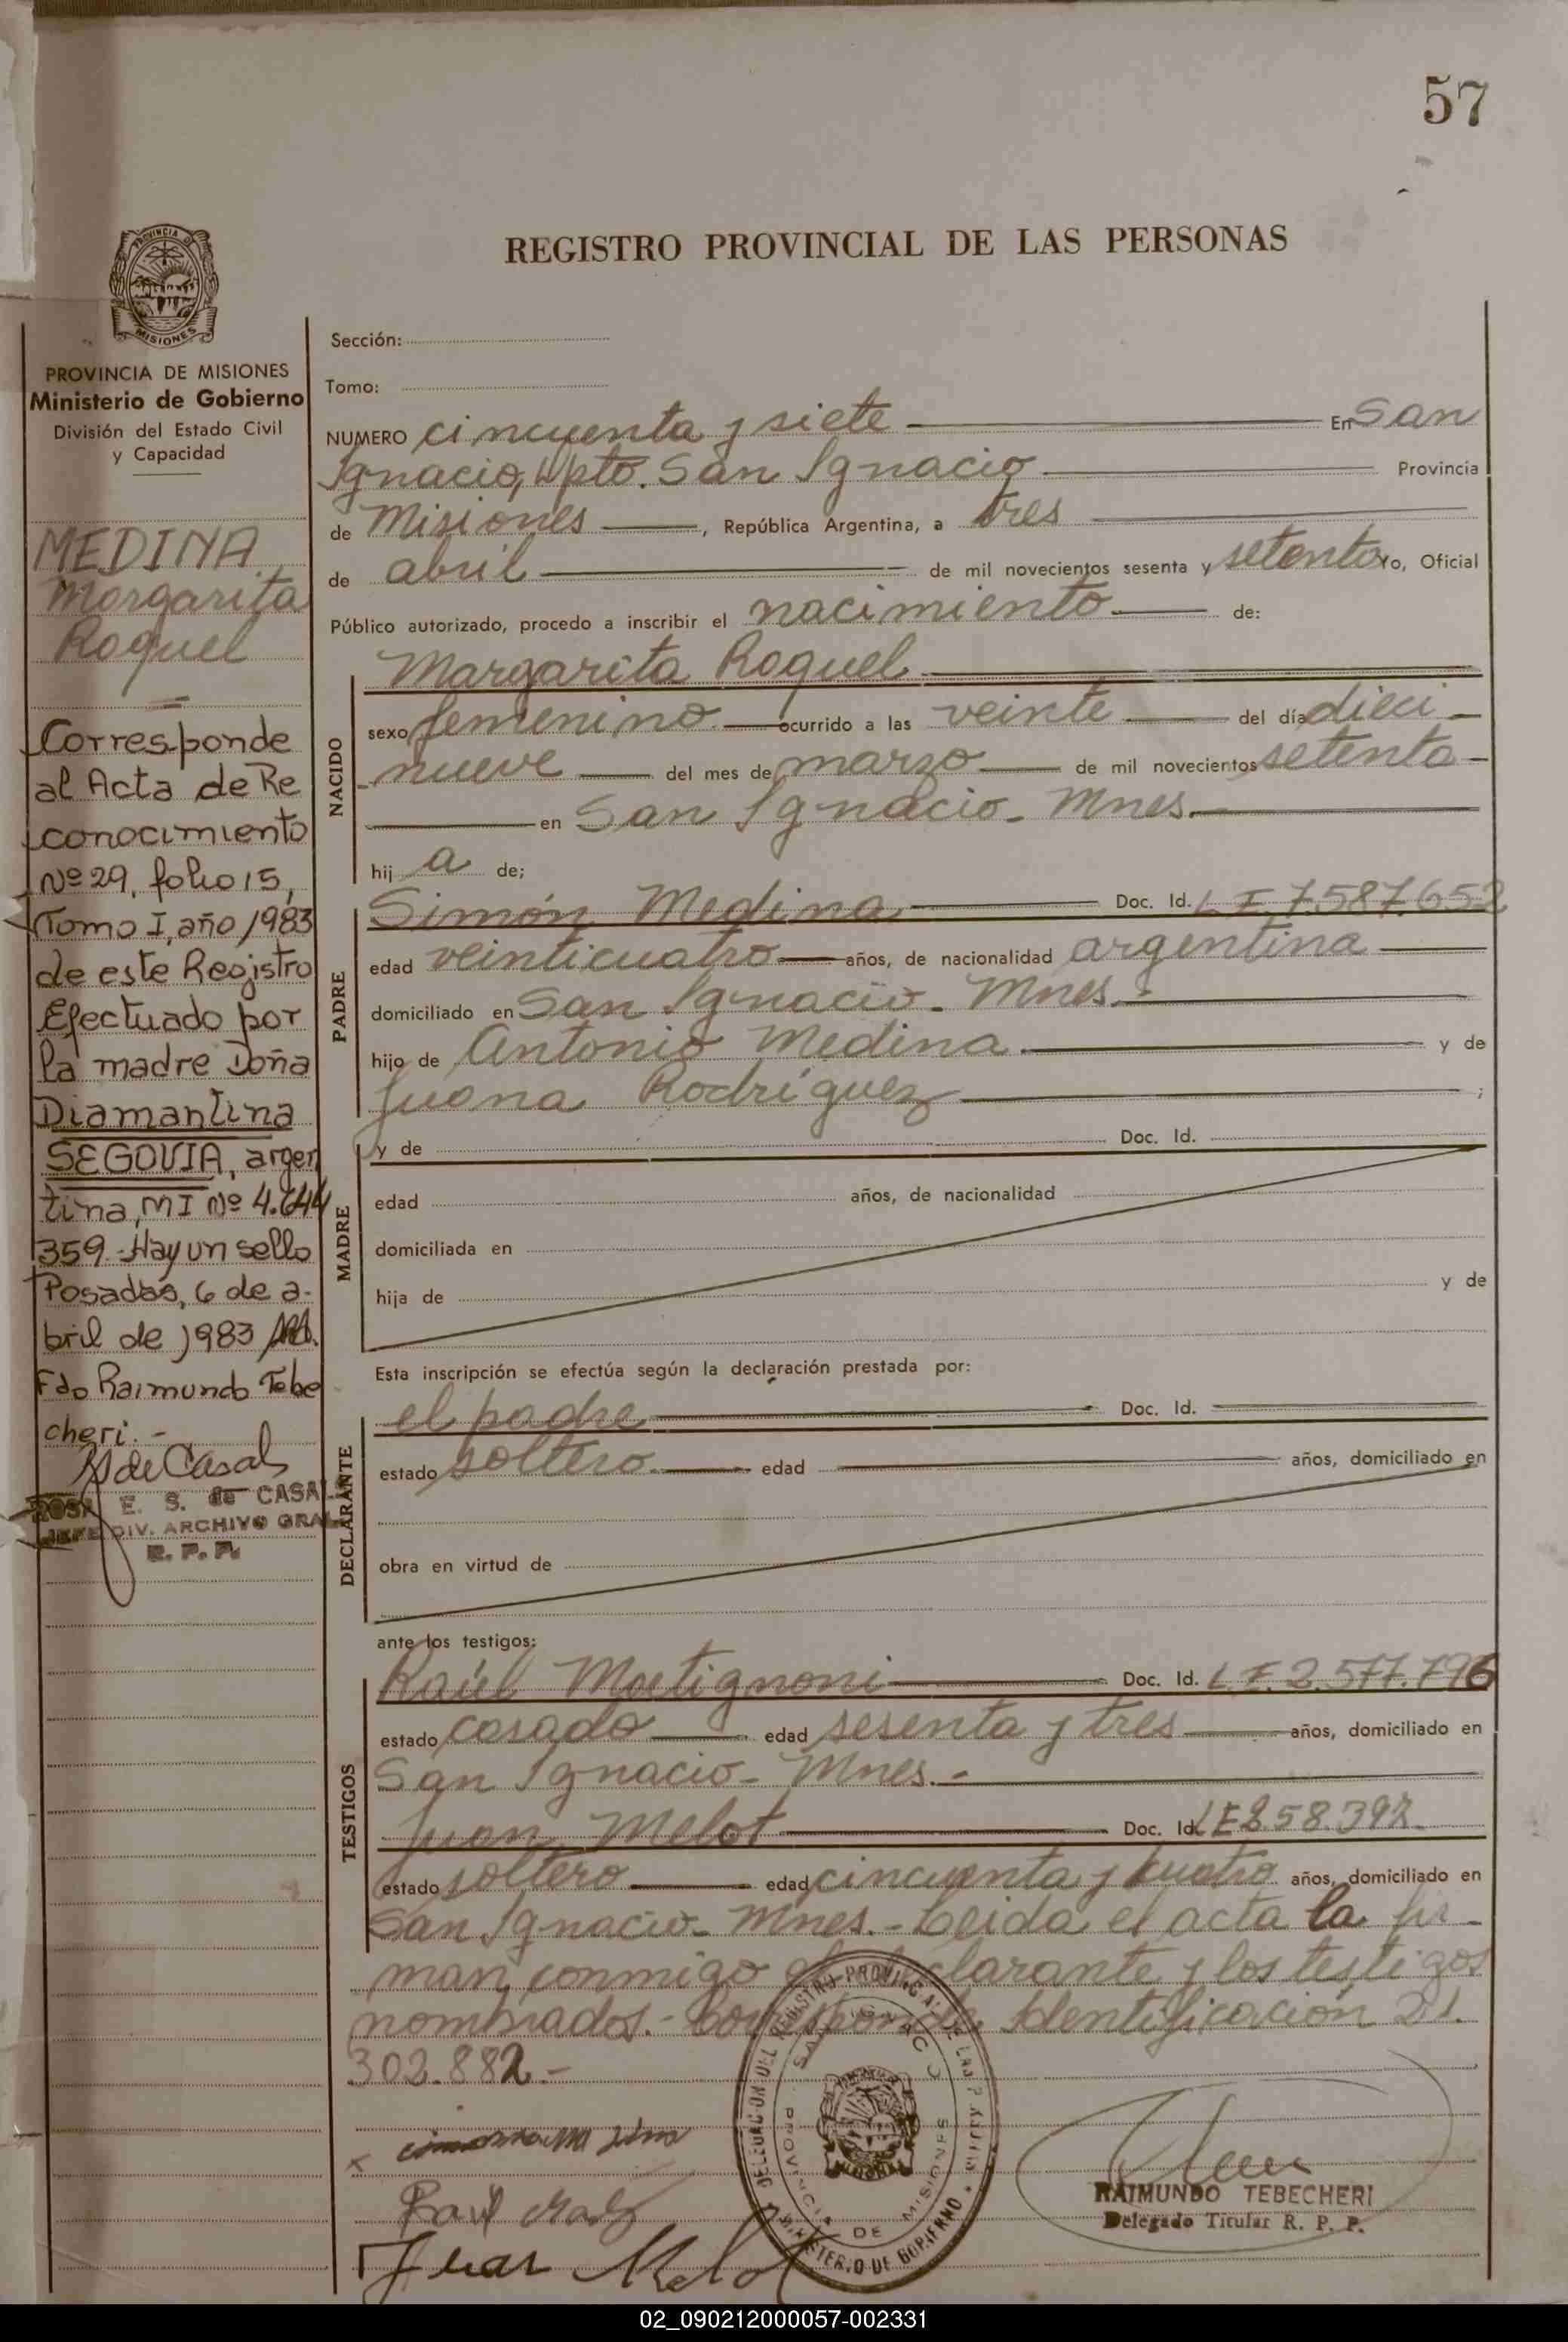 57
REGISTRO PROVINCIAL DE LAS PERSONAS
PROVINCIA DE MISIONES
Ministerio de Gobierno
División del Estado Civil
y Capacidad
MEDINA
Margarita
Raquel
Corresponde
al Acta de Re
conocimiento
Nº 29, folio 15,
Tomo I, año 1983
de este Registro
Efectuado por
la madre Doña
Diamantina
SEGOVIA, argen
tina, MI Nº 4.644
359.- Hay un sello
Posadas, 6 de a-
bril de 1983
Fdo Raimundo Tebe
cheri.-
ROSA E. S. de CASAL
JEFE DIV. ARCHIVO GRAL
R. P. P.
Sección:
Tomo:
NUMERO cincuenta y siete En San
Ignacio, Dpto. San Ignacio Provincia
de Misiones, República Argentina, a tres
de abril de mil novecientos sesenta y setenta Yo, Oficial
Público autorizado, procedo a inscribir el nacimiento de:
NACIDO
Margarita Raquel
sexo femenino ocurrido a las veinte del día dieci-
nueve del mes de marzo de mil novecientos setenta-
en San Ignacio- Mnes.
hij a de;
PADRE
Simón Medina Doc. Id. L.E. 7.587.652
edad veinticuatro años, de nacionalidad argentina
domiciliado en San Ignacio- Mnes.
hijo de Antonio Medina. y de
Juana Rodríguez ;
MADRE
y de Doc. Id.
edad años, de nacionalidad
domiciliada en
hija de y de
Esta inscripción se efectúa según la declaración prestada por:
DECLARANTE
el padre Doc. Id.
estado soltero edad años, domiciliado en
obra en virtud de
ante los testigos:
TESTIGOS
Raúl Matignoni Doc. Id. L.E. 2.577.796
estado casado edad sesenta y tres años, domiciliado en
San Ignacio- Mnes.-
Juan Melot Doc. Id. LE 858.392
estado soltero edad cincuenta y cuatro años, domiciliado en
San Ignacio- Mnes.- Leida el acta la fir-
man conmigo el declarante y los testigos
nombrados.- Corresponde Identificación 21.
302.882.-
DELEGACION DEL REGISTRO PROVINCIAL DE LAS PERSONAS
SAN IGNACIO
PROVINCIA DE MISIONES
MINISTERIO DE GOBIERNO
Juan Melo
RAIMUNDO TEBECHERI
Delegado Titular R. P. P.
02_090212000057-002331